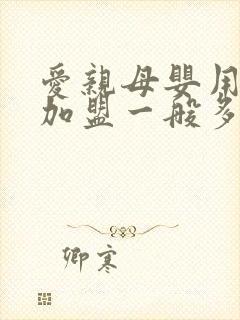 愛親母嬰用
加盟一般多
卿寒